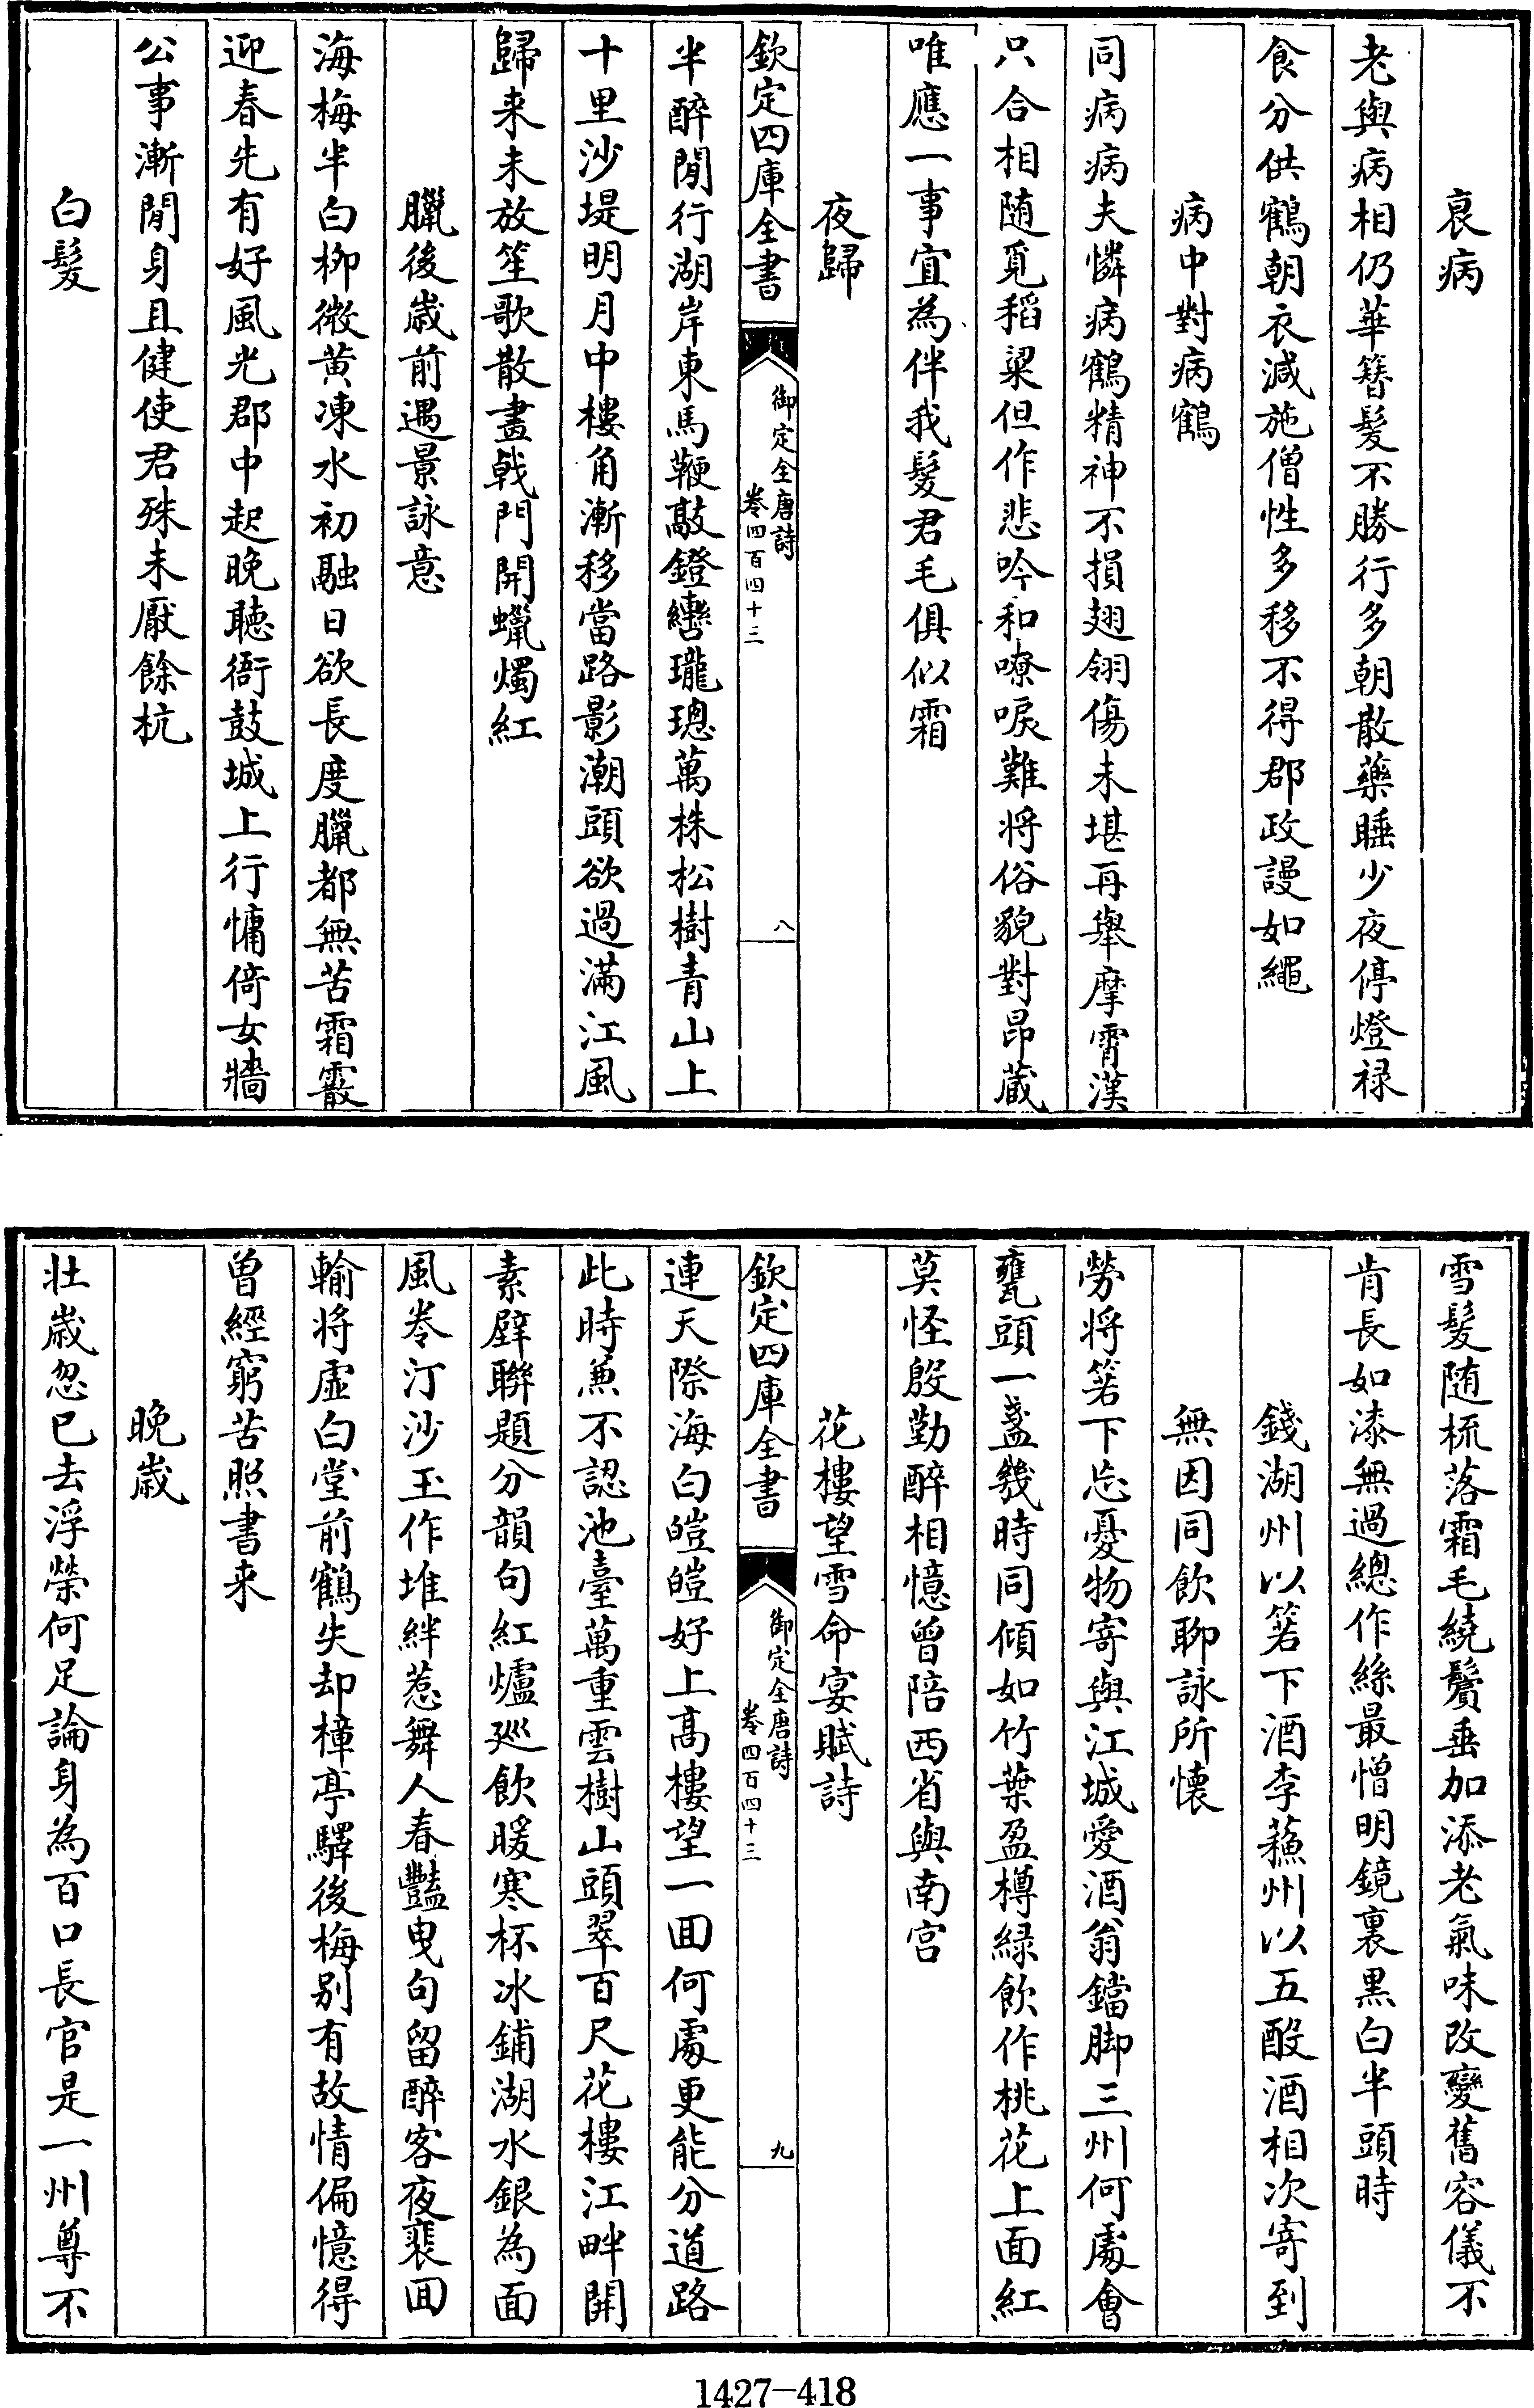 衰病
老與病相仍華簪髮不勝行多朝散藥睡少夜停燈祿
食分供鶴朝衣減施僧性多移不得郡政謾如繩
病中對病鶴
同病病夫憐病鶴精神不損翅翎傷未堪再舉摩霄漢
只合相随覓稻粱但作悲吟和嘹唳難將俗貌對昂藏
唯應一事宜為伴我髮君毛俱似霜
夜歸
欽定四庫全書
御定全唐詩
卷四百四十三
八
半醉閒行湖岸東馬鞭敲鐙轡瓏璁萬株松樹青山上
十里沙堤明月中樓角漸移當路影潮頭欲過滿江風
歸来未放笙歌散畫戟門開蠟燭紅
臘後歲前遇景詠意
海梅半白柳微黄凍水初融日欲長度臘都無苦霜霰
迎春先有好風光郡中起晚聽衙鼓城上行慵倚女牆
公事漸閒身且健使君殊未厭餘杭
白髮
雪髮随梳落霜毛繞鬢垂加添老氣味改變舊容儀不
肯長如漆無過總作絲最憎明鏡裏黒白半頭時
錢湖州以箬下酒李蘓州以五酘酒相次寄到
無因同飲聊詠所懷
勞將箬下忘憂物寄與江城愛酒翁鐺脚三州何處會
甕頭一盞幾時同傾如竹葉盈樽緑飲作桃花上面紅
莫怪殷勤醉相憶曾陪西省與南宫
花樓望雪命宴賦詩
欽定四庫全書
御定全唐詩
卷四百四十三
九
連天際海白皚皚好上高樓望一囬何處更能分道路
此時兼不認池臺萬重雲樹山頭翠百尺花樓江畔開
素壁聯題分韻句紅爐廵飲暖寒杯冰鋪湖水銀為面
風卷汀沙玉作堆絆惹舞人春豔曳句留醉客夜裴囬
輸將虛白堂前鶴失却樟亭驛後梅别有故情偏憶得
曽經窮苦照書来
晚歲
壯歲忽已去浮榮何足論身為百口長官是一州尊不
1427-418